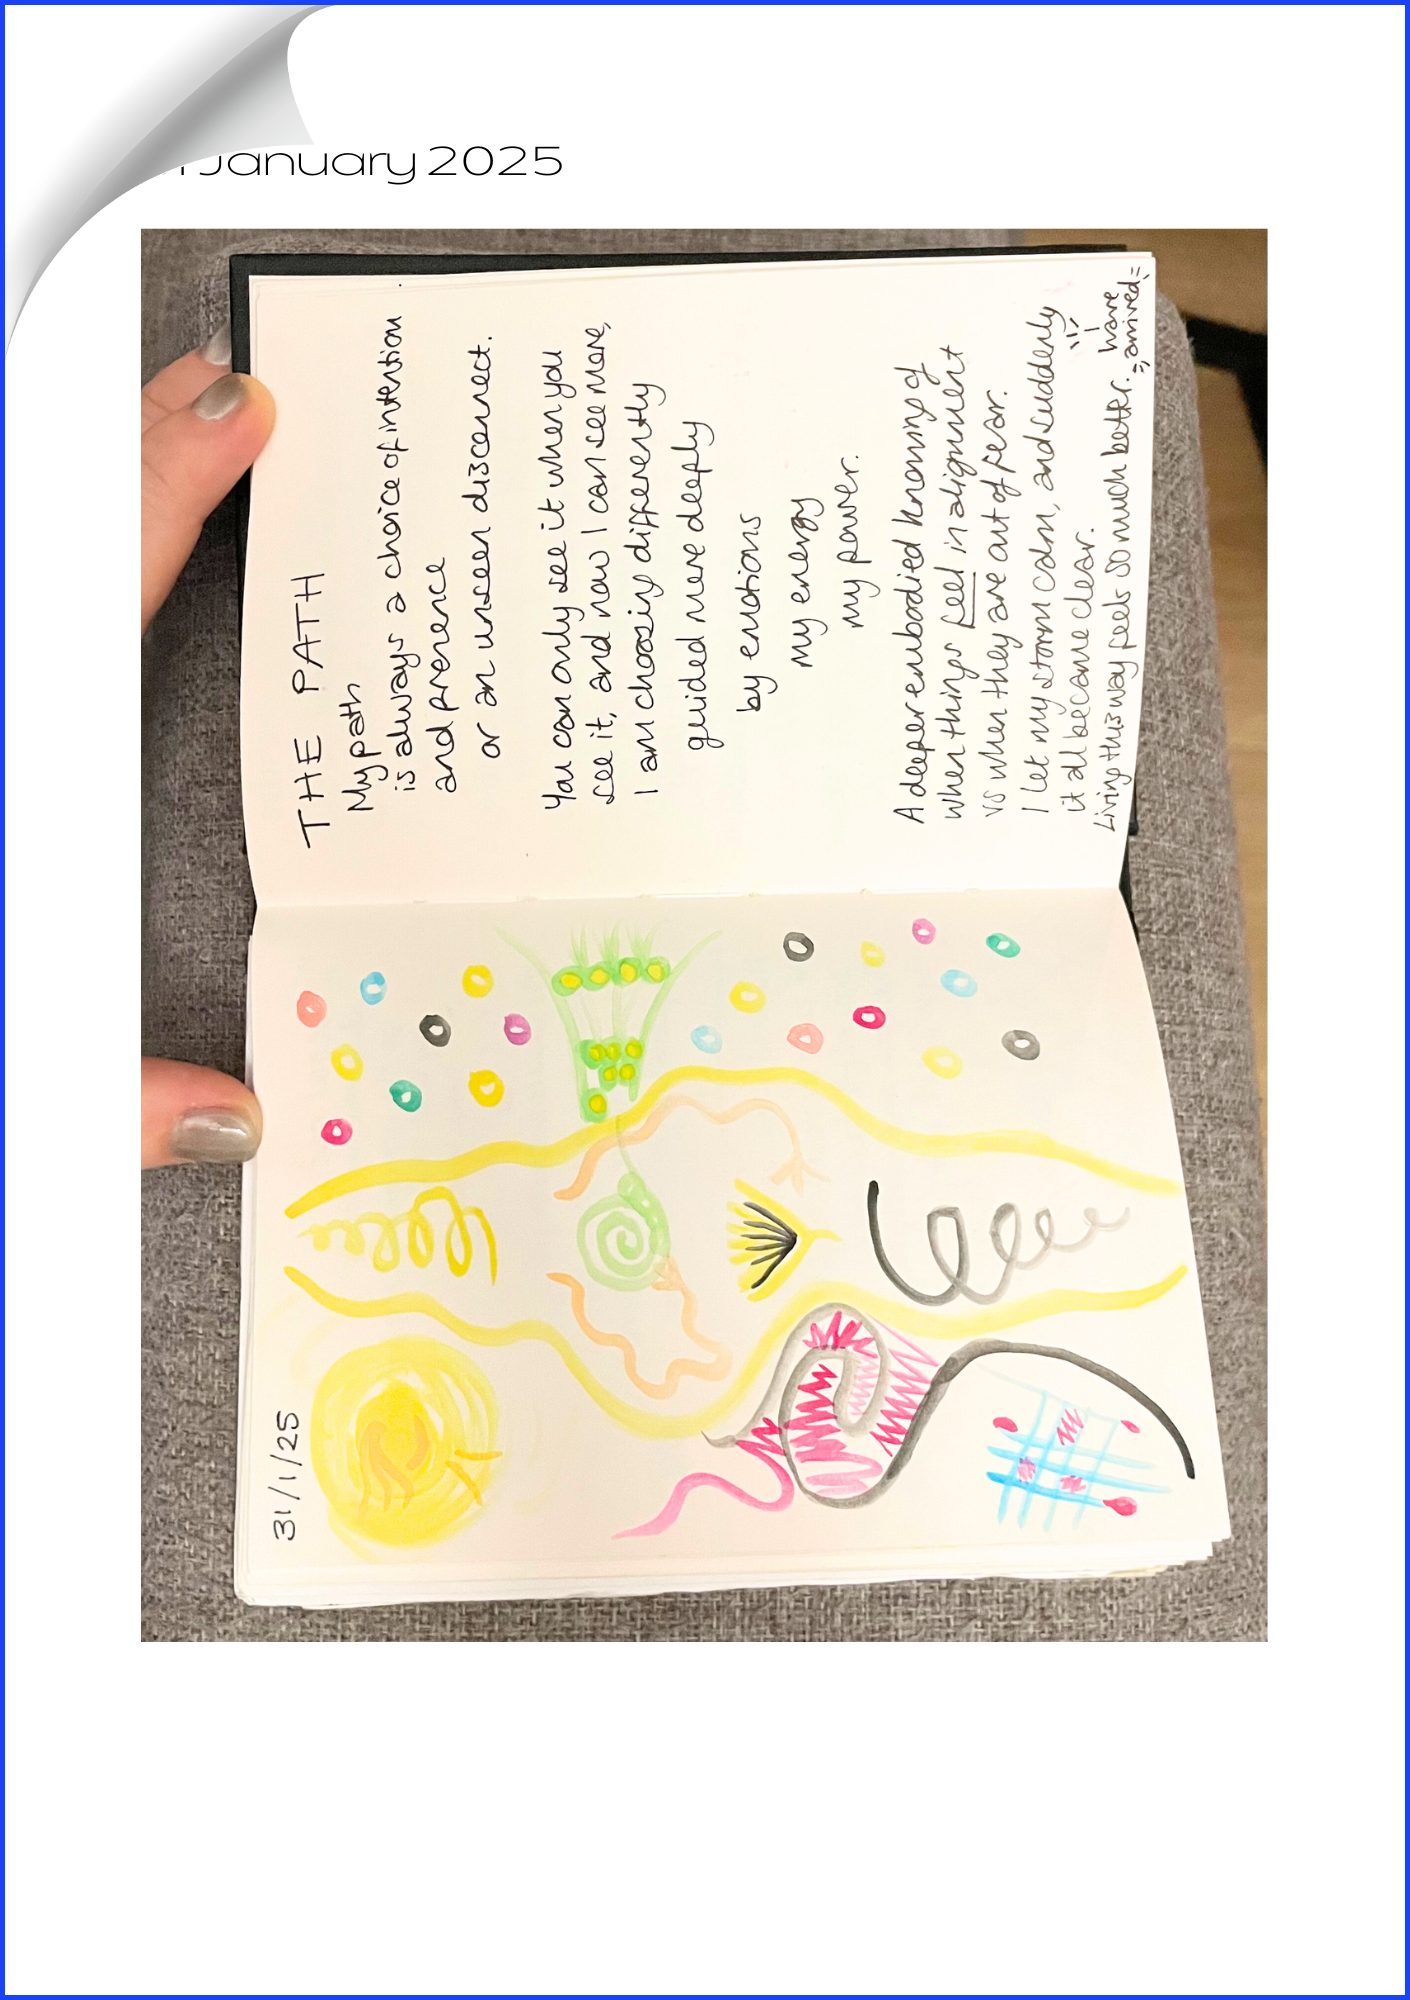 January 2025
31/1/25
THE PATH
My path
is always a choice of intention
and presence
or an unseen disconnect.
You can only see it when you
see it, and now I can see more,
I am choosing differently
guided more deeply
by emotions
my energy
my power.
A deeper embodied knowing of
when things feel in alignment
vs when they are out of fear.
I let my storm calm, and suddenly
it all became clear.
Living this way feels so much better.
I
have
arrived